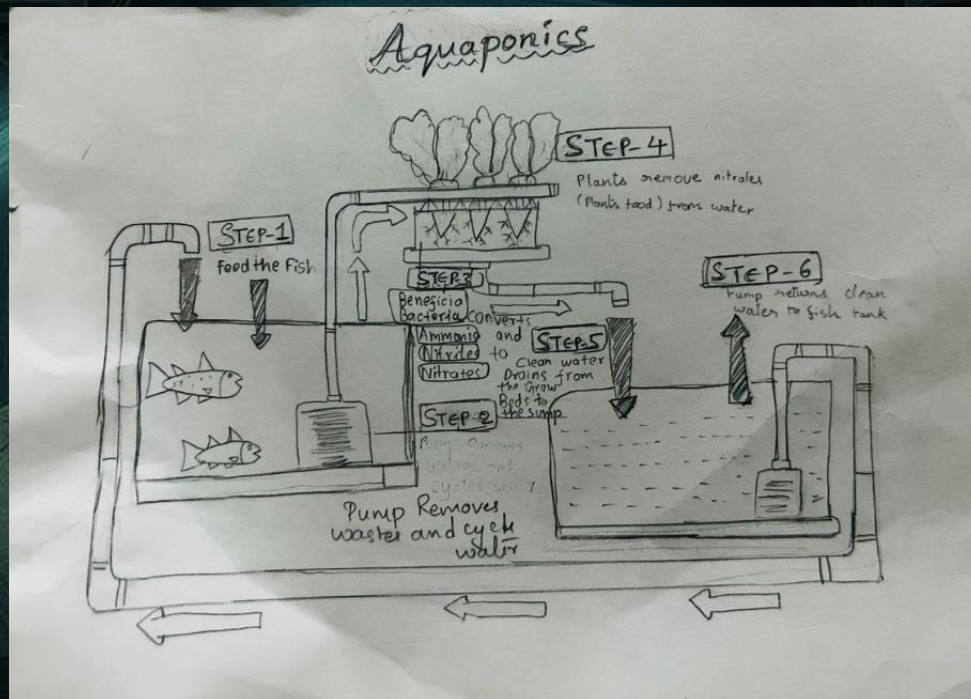 Aquaponics
STEP-1
feed the Fish
STEP-4
Plants remove nitrates
(Plants food) from water
STEP-3
Beneficia
Bacteria converts
Ammonia and
Nitrites to
Nitrates
STEP-5
Clean water
Drains from
the Grow
Beds to
the sump
STEP-6
Pump returns clean
water to fish tank
STEP-2
Pump Removes
Wastes and
Cycles water
Pump Removes
wastes and cycle
water